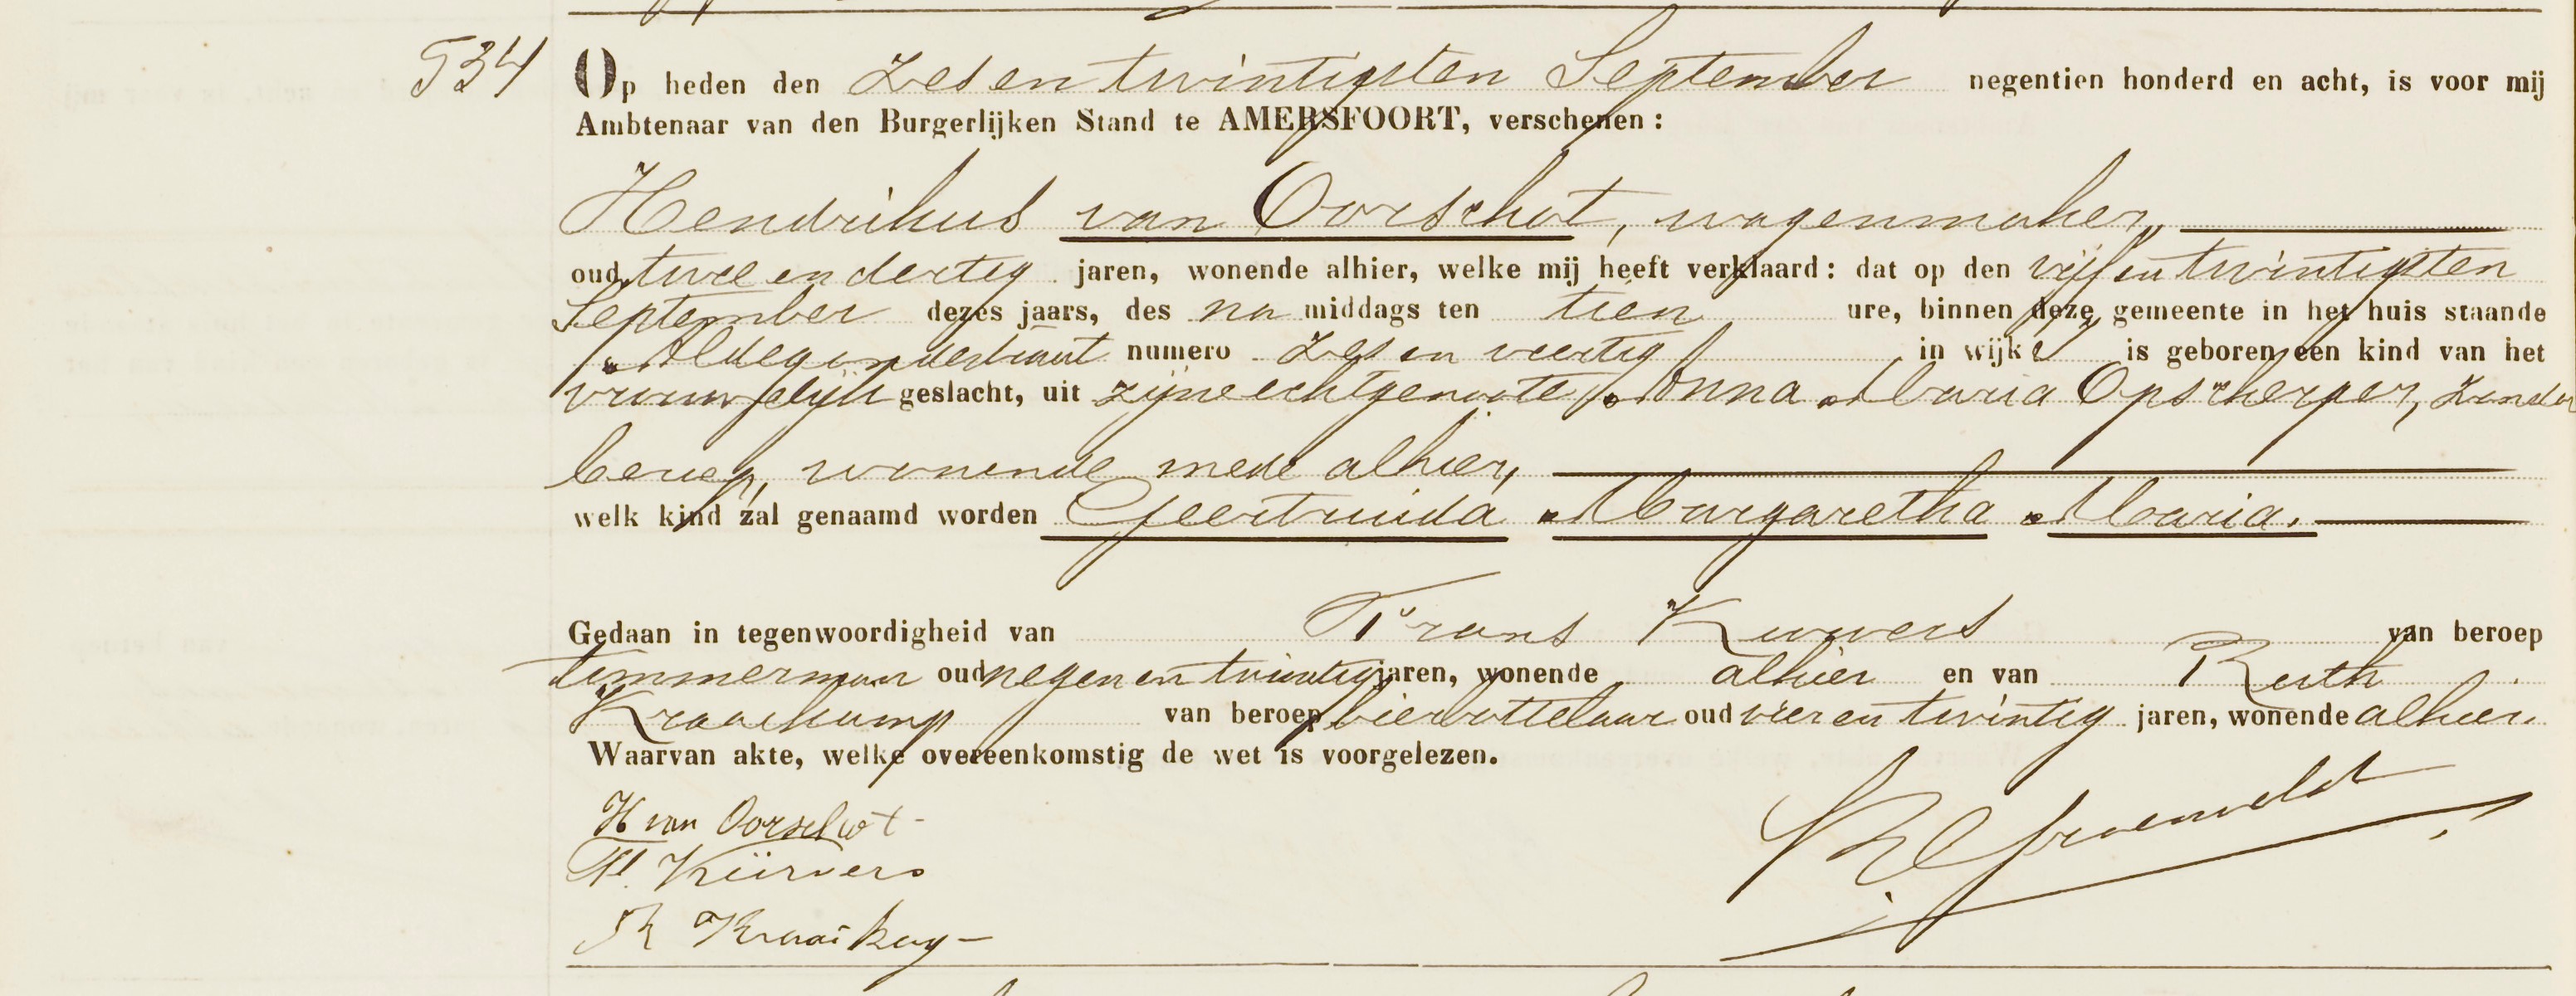 534
Op heden den zes en twintigsten September negentien honderd en acht, is voor mij
Ambtenaar van den Burgerlijken Stand te AMERSFOORT, verschenen:
Hendrikus van Oorschot, wagenmaker,
oud twee en dertig jaren, wonende alhier, welke mij heeft verklaard: dat op den vijf en twintigsten
September dezes jaars, des na middags ten tien ure, binnen deze gemeente in het huis staande
Aldegondestraat numero zes en veertig in wijk is geboren een kind van het
vrouwelijk geslacht, uit zijne echtgenoote Anna Maria Opscherper, zonder
beroep, wonende mede alhier,
welk kind zal genaamd worden Geertruida Margaretha Maria.
Gedaan in tegenwoordigheid van Frans van beroep
timmerman oud negen en twintig jaren, wonende alhier en van Ruth
Kraaikamp van beroep bierbottelaar oud vier en twintig jaren, wonende alhier.
Waarvan akte, welke overeenkomstig de wet is voorgelezen.
H van Oorschot